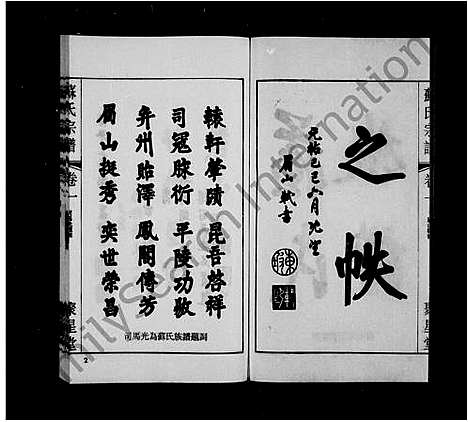 蘇氏宗譜
卷一
之帙
元祐己巳六月 望
眉山軾書
聚星堂
轅軒肇蹟 昆吾啓祥
司冠脉衍 平陵功敬
弁州貽澤 鳳閣傳芳
眉山挺秀 奕世榮昌
司馬光為蘇氏族譜題詞
蘇氏宗譜
卷一
聚星堂
2
FamilySearch International